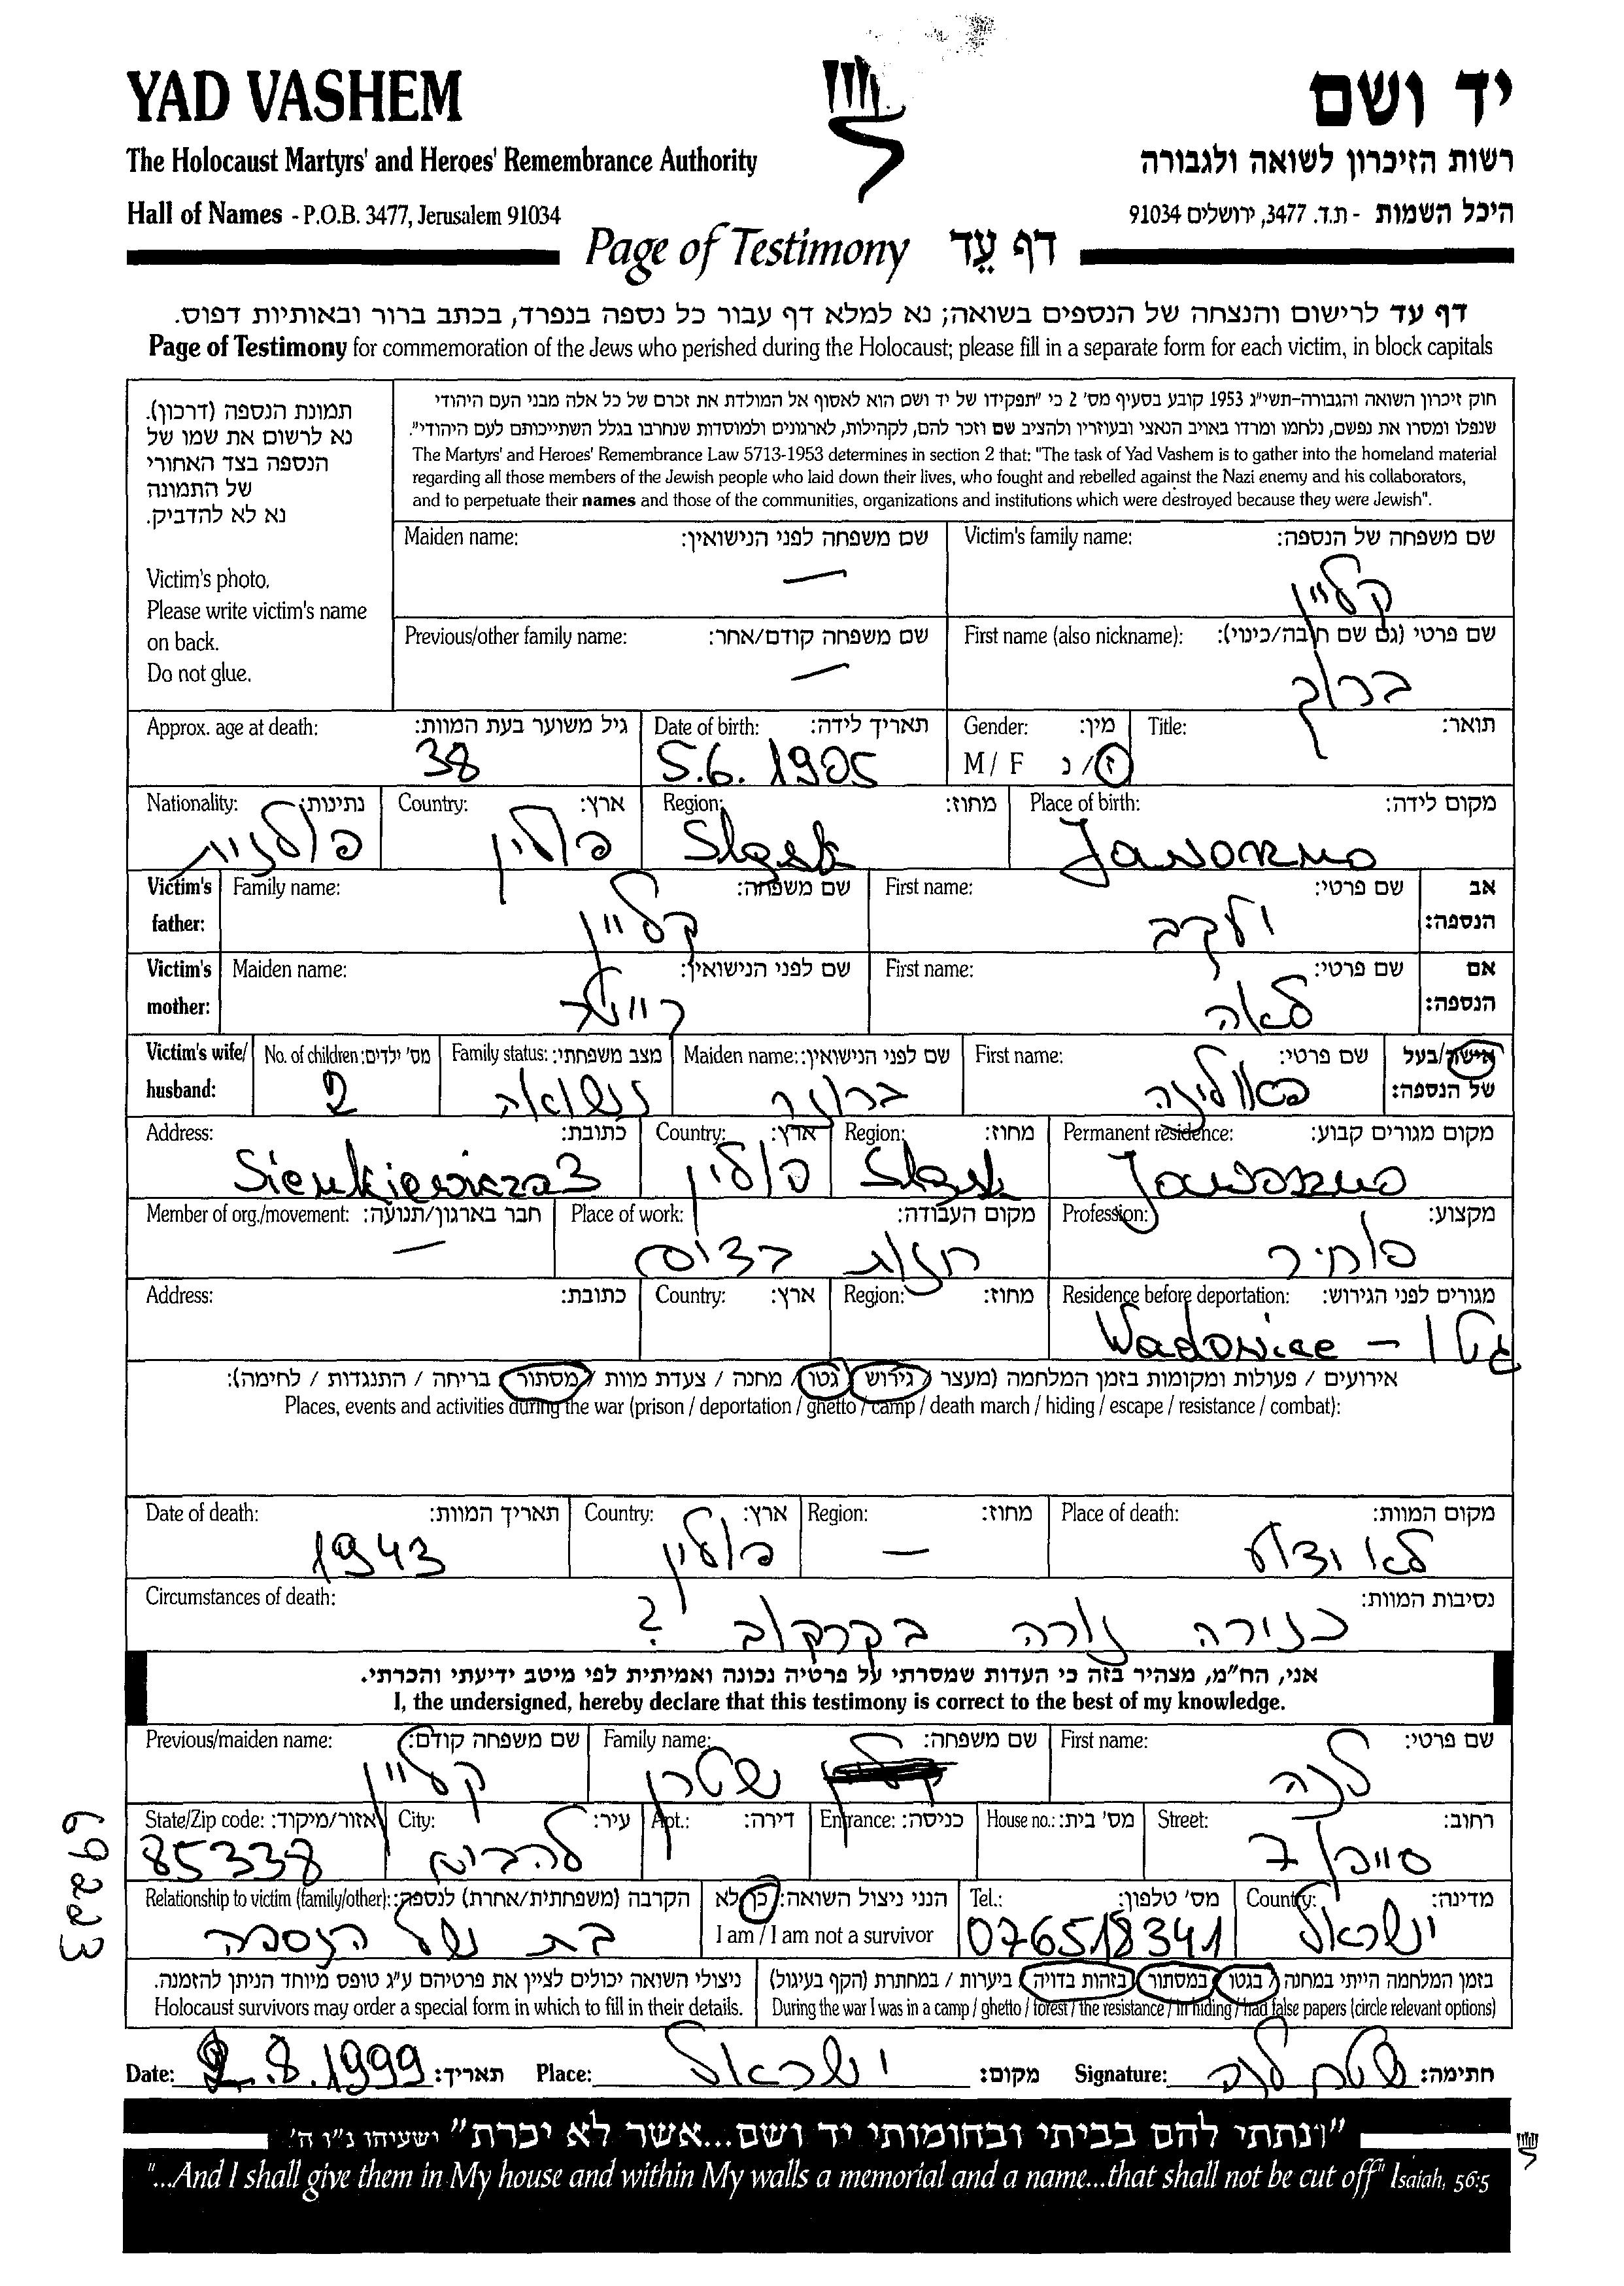 YAD VASHEM
יד ושם
The Holocaust Martyrs' and Heroes' Remembrance Authority
רשות הזיכרון לשואה ולגבורה
Hall of Names - P.O.B. 3477, Jerusalem 91034
היכל השמות - ת.ד. 3477, ירושלים 91034
Page of Testimony דף עֵד
דף עד לרישום והנצחה של הנספים בשואה; נא למלא דף עבור כל נספה בנפרד, בכתב ברור ובאותיות דפוס.
Page of Testimony for commemoration of the Jews who perished during the Holocaust; please fill in a separate form for each victim, in block capitals
תמונת הנספה (דרכון).
נא לרשום את שמו של
הנספה בצד האחורי
של התמונה
נא לא להדביק.
Victim's photo.
Please write victim's name
on back.
Do not glue.
חוק זיכרון השואה והגבורה-תשי"ג 1953 קובע בסעיף מס' 2 כי "תפקידו של יד ושם הוא לאסוף אל המולדת את זכרם של כל אלה מבני העם היהודי
שנפלו ומסרו את נפשם, נלחמו ומרדו באויב הנאצי ובעוזריו ולהציב שם וזכר להם, לקהילות, לארגונים ולמוסדות שנחרבו בגלל השתייכותם לעם היהודי".
The Martyrs' and Heroes' Remembrance Law 5713-1953 determines in section 2 that: "The task of Yad Vashem is to gather into the homeland material
regarding all those members of the Jewish people who laid down their lives, who fought and rebelled against the Nazi enemy and his collaborators,
and to perpetuate their names and those of the communities, organizations and institutions which were destroyed because they were Jewish".
Victim's family name: שם משפחה של הנספה:
קליין
Maiden name: שם משפחה לפני הנישואין:
—
First name (also nickname): שם פרטי (גם שם חיבה/כינוי):
ברוך
Previous/other family name: שם משפחה קודם/אחר:
—
Title: תואר:
Gender: מין:
M / F ז/נ
Date of birth: תאריך לידה:
5.6. 1905
Approx. age at death: גיל משוער בעת המוות:
38
Place of birth: מקום לידה:
Jaworzno
Region: מחוז:
Slązk
Country: ארץ:
פולין
Nationality: נתינות:
פולנית
Victim's father: אב הנספה:
First name: שם פרטי:
יעקב
Family name: שם משפחה:
קליין
Victim's mother: אם הנספה:
First name: שם פרטי:
לאה
Maiden name: שם לפני הנישואין:
Victim's wife/husband: אישה/בעל של הנספה:
First name: שם פרטי:
פאולינה
Maiden name: שם לפני הנישואין:
ברונר
Family status: מצב משפחתי:
נשואה
No. of children: מס' ילדים:
2
Permanent residence: מקום מגורים קבוע:
Jaworzno
Region: מחוז:
Slązk
Country: ארץ:
פולין
Address: כתובת:
Sienkiewicza 3
Profession: מקצוע:
סוחר
Place of work: מקום העבודה:
חנות
Member of org./movement: חבר בארגון/תנועה:
—
Residence before deportation: מגורים לפני הגירוש:
Wadowice - גטו
Region: מחוז:
Country: ארץ:
Address: כתובת:
אירועים / פעולות ומקומות בזמן המלחמה (מעצר / גירוש / גטו / מחנה / צעדת מוות / מסתור / בריחה / התנגדות / לחימה):
Places, events and activities during the war (prison / deportation / ghetto / camp / death march / hiding / escape / resistance / combat):
Place of death: מקום המוות:
לא ידוע
Region: מחוז:
—
Country: ארץ:
פולין
Date of death: תאריך המוות:
1943
Circumstances of death: נסיבות המוות:
כנירה נורה בקרקוב ?
אני, הח"מ, מצהיר בזה כי העדות שמסרתי על פרטיה נכונה ואמיתית לפי מיטב ידיעתי והכרתי.
I, the undersigned, hereby declare that this testimony is correct to the best of my knowledge.
First name: שם פרטי:
לנה
Family name: שם משפחה:
שטרן
Previous/maiden name: שם משפחה קודם:
קליין
Street: רחוב:
סייפן 7
House no.: מס' בית:
Entrance: כניסה:
Apt.: דירה:
City: עיר:
להבים
State/Zip code: אזור/מיקוד:
85338
Country: מדינה:
ישראל
Tel.: מס' טלפון:
076518341
הנני ניצול השואה: כן/לא
I am / I am not a survivor
Relationship to victim (family/other): הקרבה (משפחתית/אחרת) לנספה:
בת של הנספה
בזמן המלחמה הייתי במחנה / בגטו / במסתור / בזהות בדויה / ביערות / במחתרת (הקף בעיגול)
During the war I was in a camp / ghetto / forest / the resistance / in hiding / had false papers (circle relevant options)
ניצולי השואה יכולים לציין את פרטיהם ע"ג טופס מיוחד הניתן להזמנה.
Holocaust survivors may order a special form in which to fill in their details.
Date: 2.8.1999 תאריך: Place: ישראל מקום: Signature: שטרן לנה חתימה:
"ונתתי להם בביתי ובחומותי יד ושם...אשר לא יכרת" ישעיהו נ"ו ה'
"...And I shall give them in My house and within My walls a memorial and a name...that shall not be cut off" Isaiah, 56:5
69223